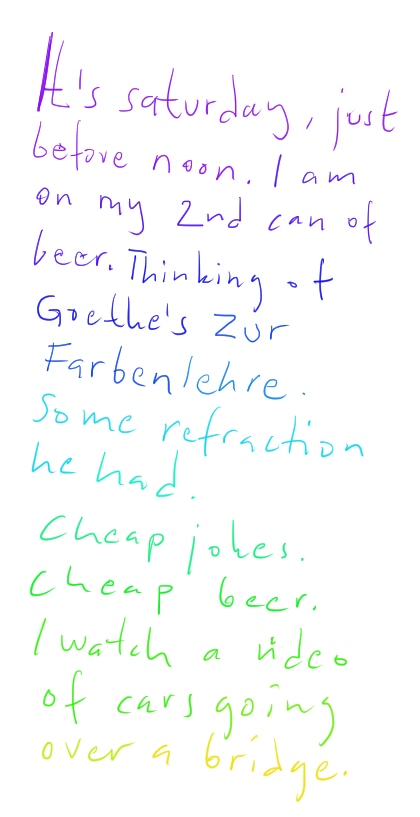 It's saturday, just
before noon. I am
on my 2nd can of
beer. Thinking of
Goethe's Zur
Farbenlehre.
Some refraction
he had.
Cheap jokes.
Cheap beer.
I watch a video
of cars going
over a bridge.